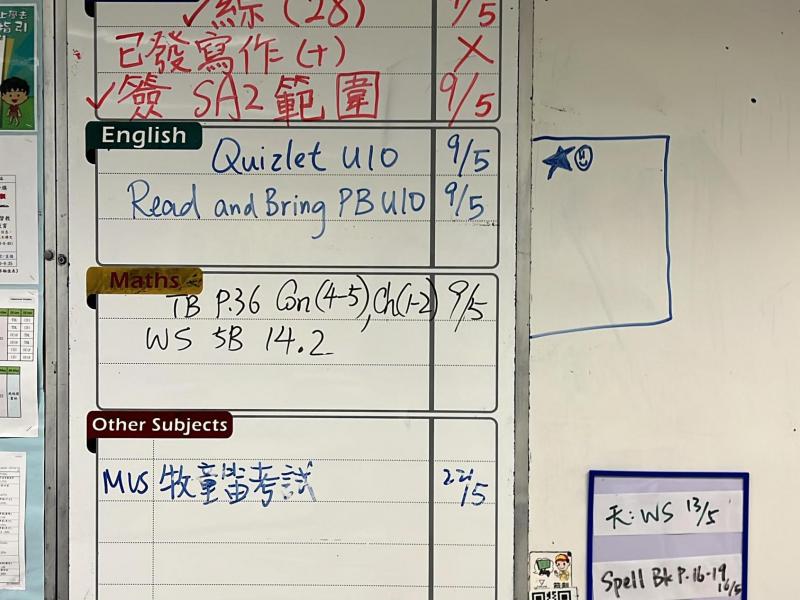 ✓綜(28) 9/5
已發寫作(+) ✗
✓簽 SA2 範圍 9/5
English
Quizlet U10 9/5
Read and Bring PB U10 9/5
Maths
TB P.36 Con(4-5), Ch(1-2) 9/5
WS 5B 14.2
Other Subjects
MUS 牧童笛考試 22/5
天: WS 13/5
Spell Bk P.16-19 16/5